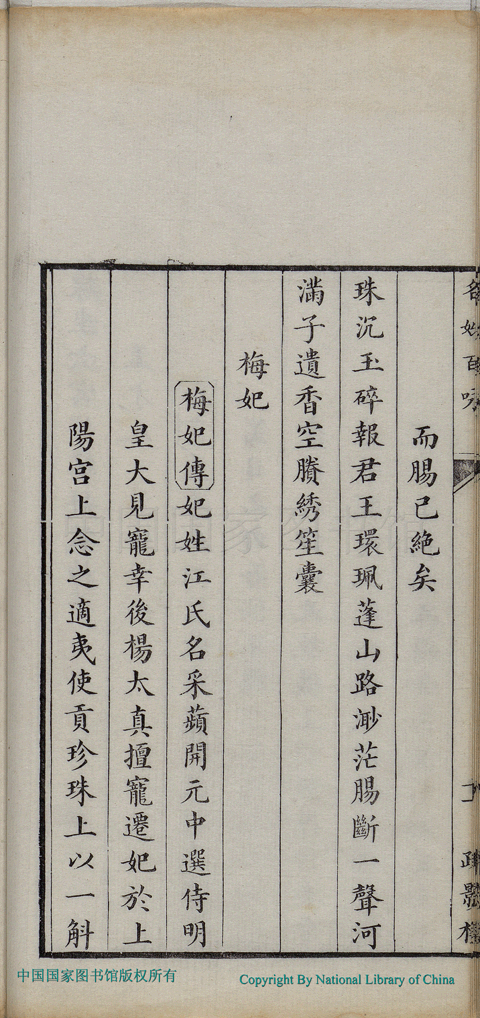 而腸已絶矣
珠沉玉碎報君王環珮蓬山路渺茫腸斷一聲河
滿子遺香空賸綉笙囊
梅妃
梅妃傳妃姓江氏名采蘋開元中選侍明
皇大見寵幸後楊太真擅寵遷妃於上
陽宮上念之適夷使貢珍珠上以一斛
中国国家图书馆版权所有
Copyright By National Library of China